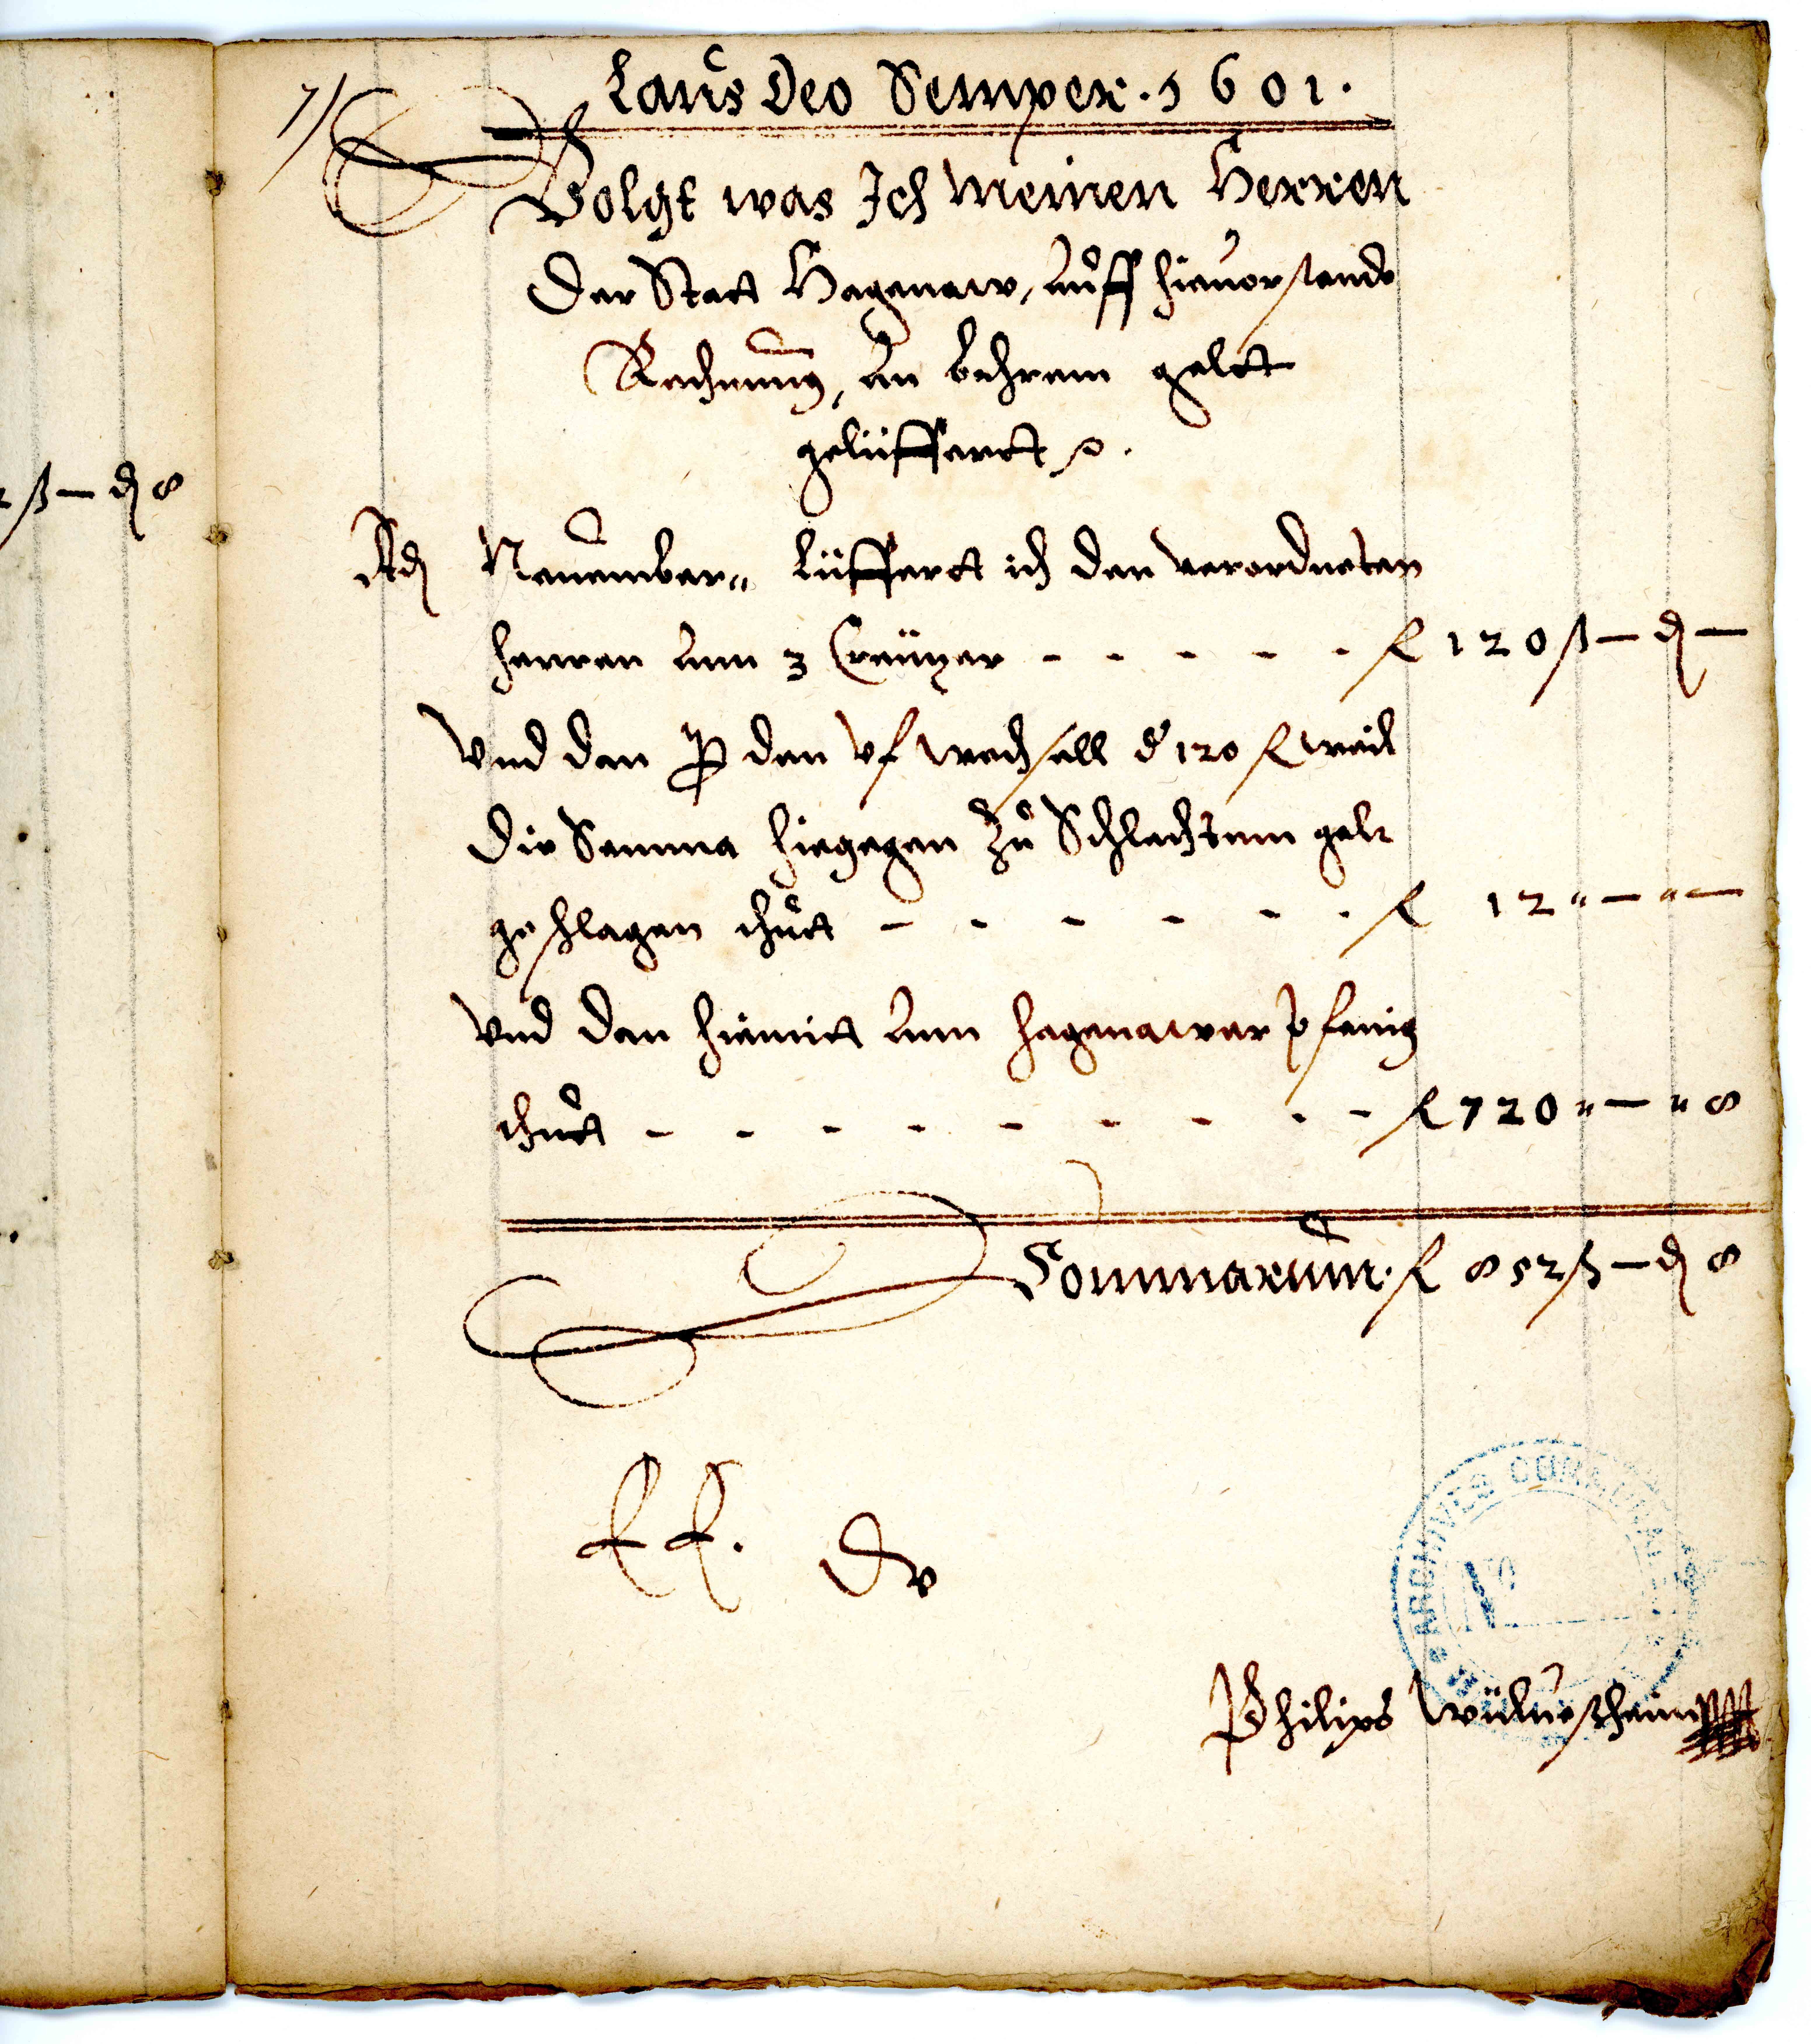 7/
Laus Deo Semper. 1601.
Volgt was Ich meinen Herren
Der Statt Hagenaw, Auff hieuorstande
Rechnung, An bahrem gelt
gelüffertt
Adj Nouember" Lüffertt ich den verordneten
herren Ann 3 Creützer - - - - - fl 120 ß — d —
Vnd dan den vf wechsell d' 120 fl weil
Die Summa hiegegen Zu Schlechtem gelt
geschlagen thutt - - - - - - fl 12 " — " —
Vnd dan hiemitt Ann hagenawer pfenig
thutt - - - - - - - - - fl 720 " — " 8
Sommarum. fl 852 ß — d 8
ß — d 8
ARCHIVES COMMUNALES
No
Philips